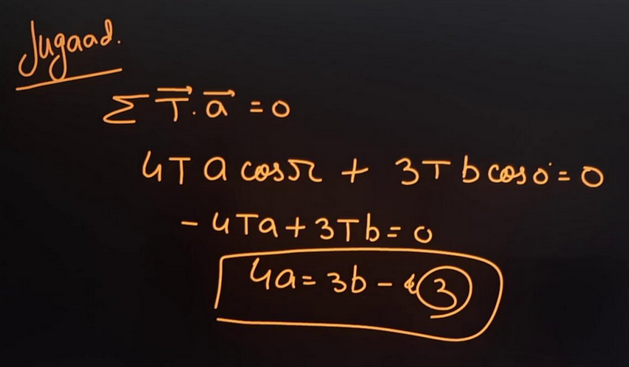 Jugaad.
Σ T⃗.a⃗ = 0
4T a cosπ + 3T b cos0° = 0
- 4Ta + 3Tb = 0
4a = 3b - ③